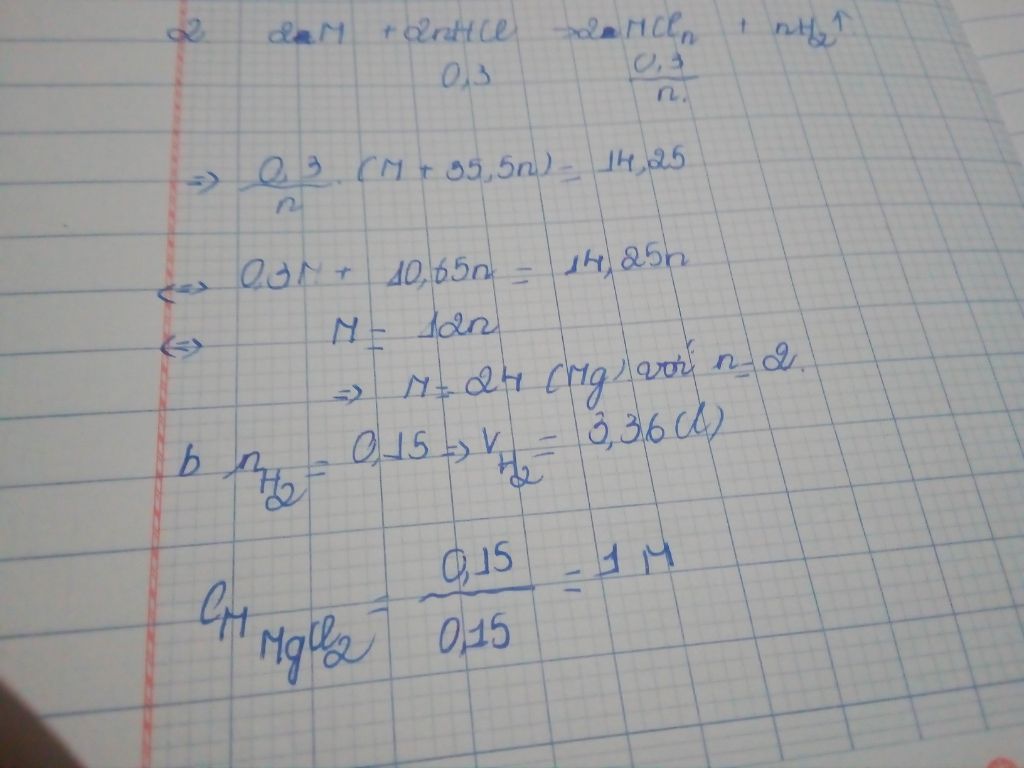 2 2M + 2nHCl → 2MCln + nH2↑
0,3 0,3/n
=> 0,3/n . (M + 35,5n) = 14,25
<=> 0,3M + 10,65n = 14,25n
<=> M = 12n
=> M = 24 (Mg) với n = 2.
b nH2 = 0,15 => VH2 = 3,36 (l)
CM MgCl2 = 0,15/0,15 = 1M